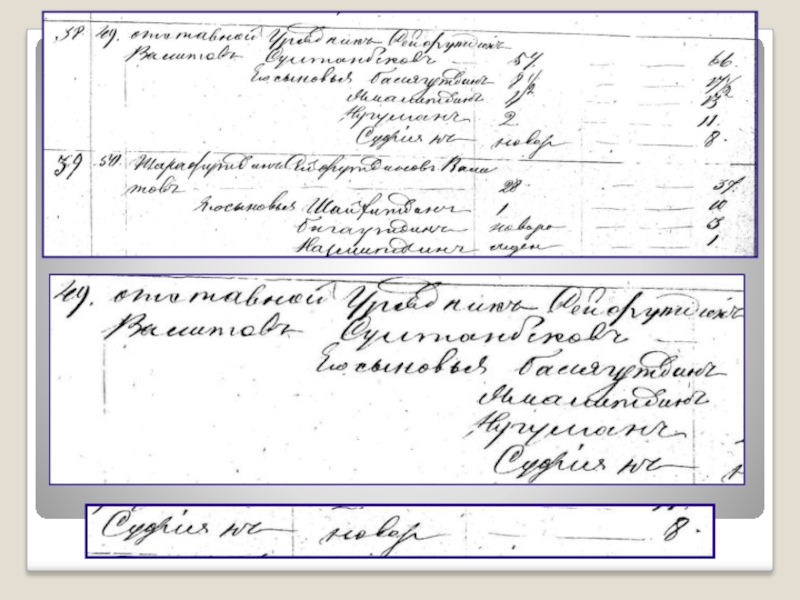 38 49. отставной Урядникъ Сейфутдинъ
Валитовъ Султанбековъ 54. — — 66
Его сыновья Баляутдинъ
Ямалитдинъ 13
Нугуманъ 2 — — 11.
Суфіянъ новор — — 8.
39 50. Шарафутдинъ Сейфутдиновъ Вали
товъ 28. — — 37.
Его сыновья Шайхитдинъ 1 — — 10
новоро
младен — — 1
49. отставной Урядникъ Сейфутдинъ
Валитовъ Султанбековъ
Его сыновья Баляутдинъ
Ямалитдинъ
Нугуманъ
Суфіянъ
Суфіянъ новор — — 8.